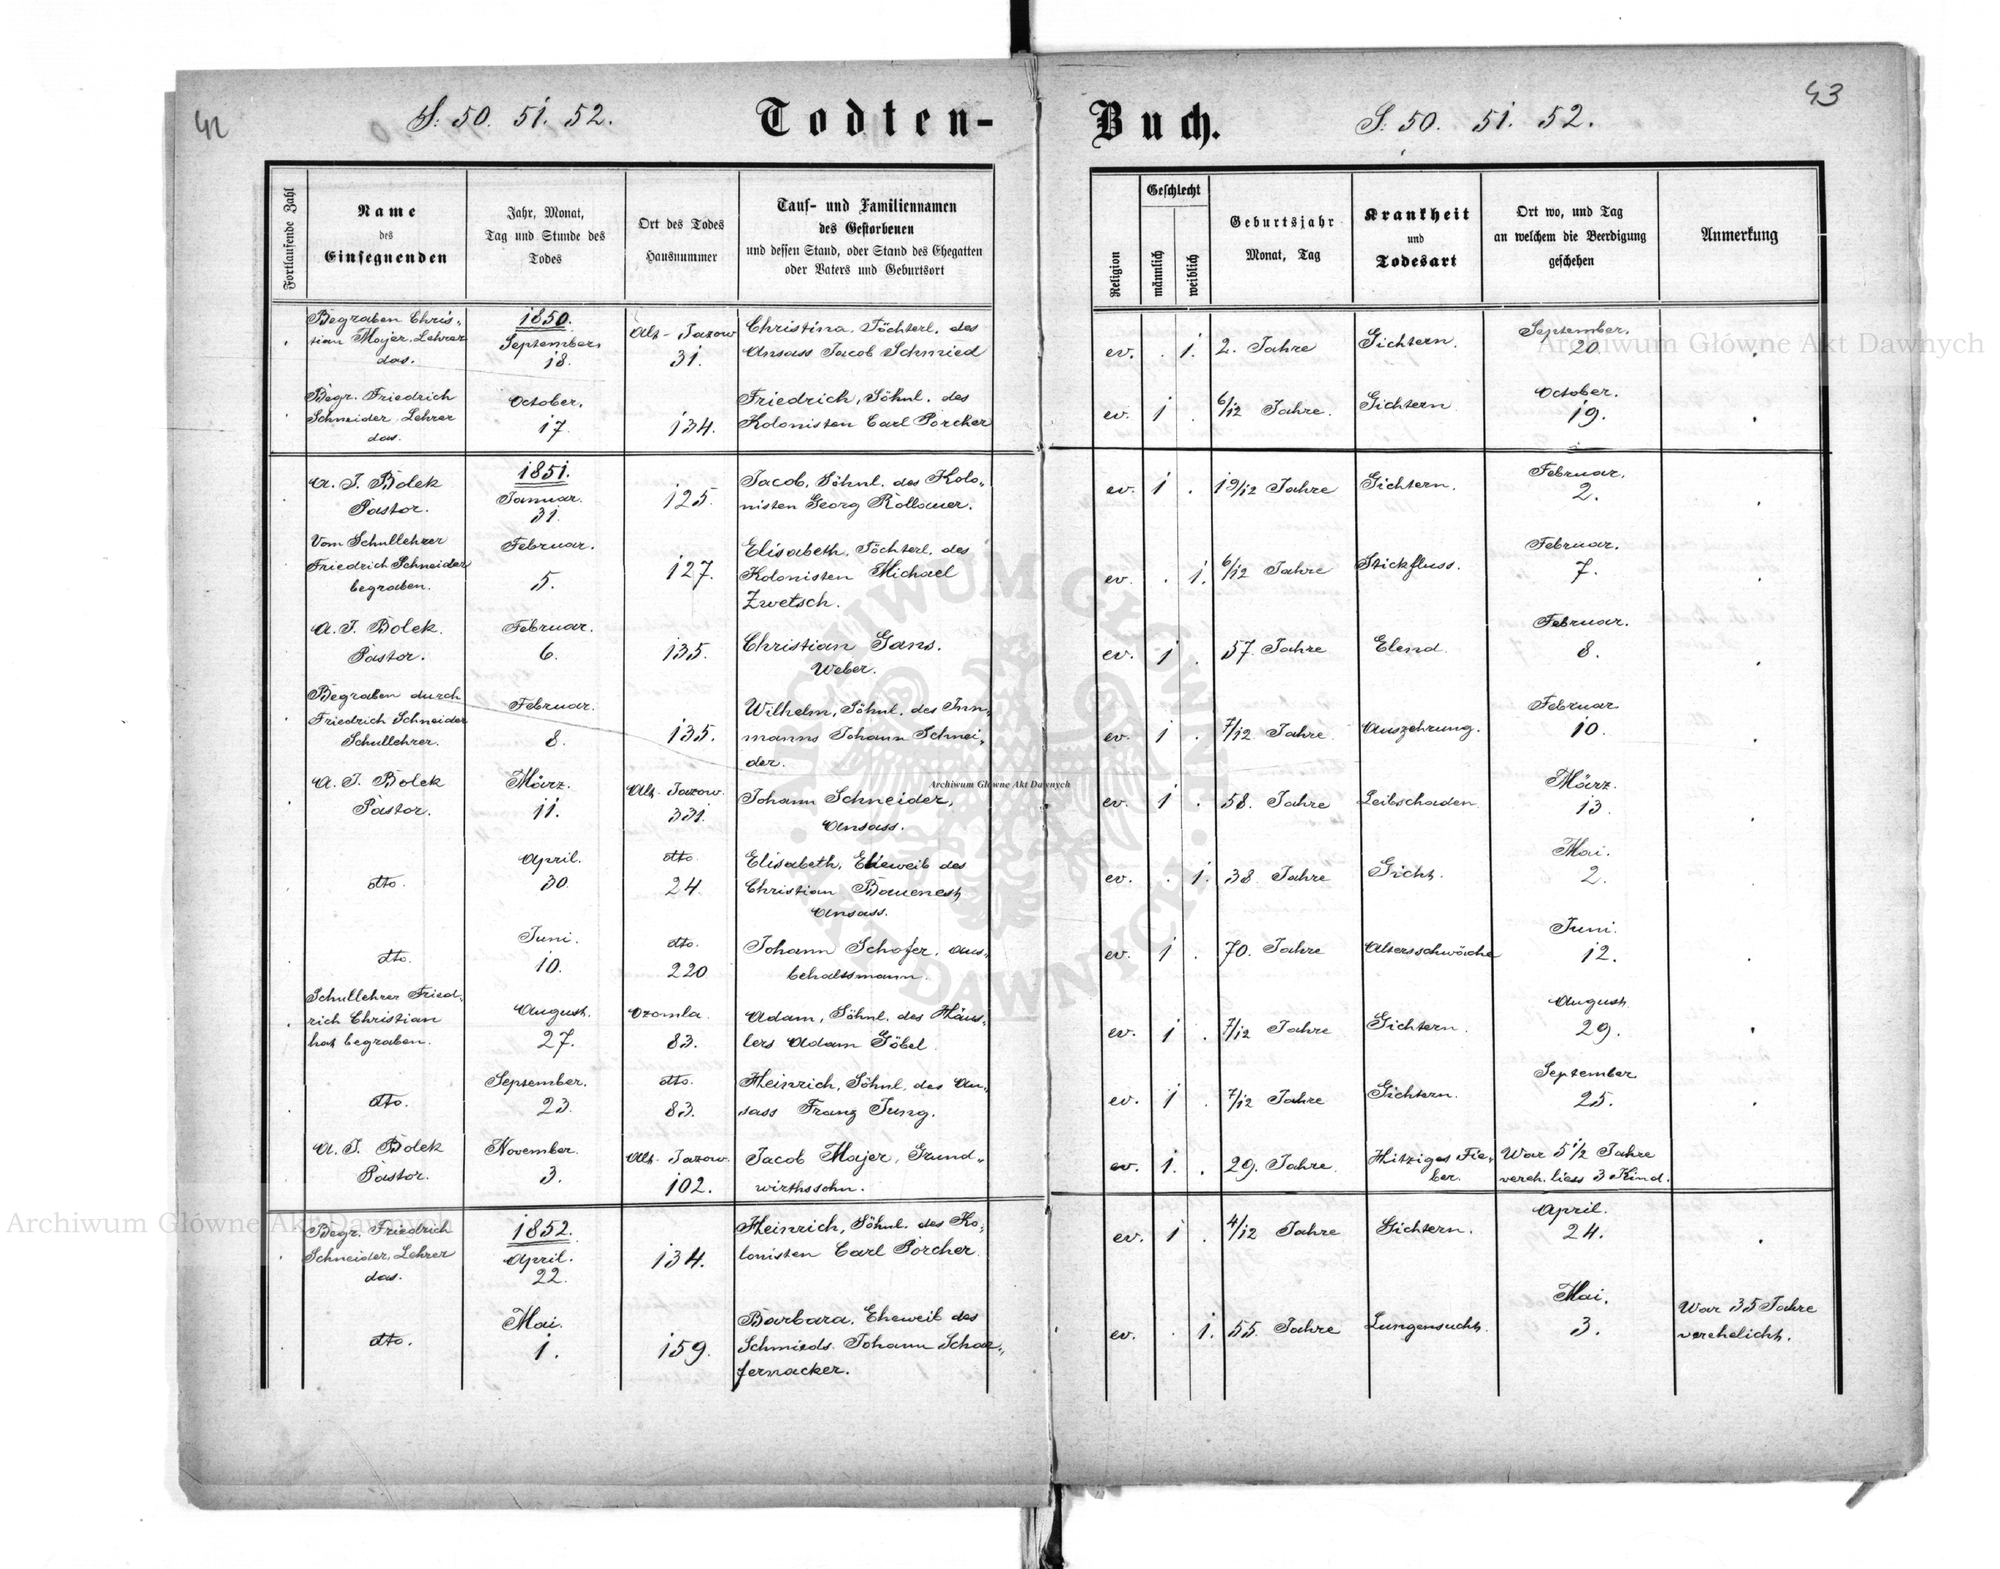 42
S. 50. 51. 52.
Todten-
Fortlaufende Zahl
Name
des
Einsegnenden
Jahr, Monat,
Tag und Stunde des
Todes
Ort des Todes
Hausnummer
Tauf- und Familiennamen
des Gestorbenen
und dessen Stand, oder Stand des Ehegatten
oder Vaters und Geburtsort
Begraben Chris-
tian Majer, Lehrer
das.
1850.
September,
18.
Alt-Jazow
31.
Christina, Töchterl. des
Ansass Jacob Schmied
Begr. Friedrich
Schneider, Lehrer
das.
October.
17.
134.
Friedrich, Söhnl. des
Kolonisten Carl Porcher
A. J. Bolek
Pastor.
1851.
Januar.
31.
125.
Jacob, Söhnl. des Kolo-
nisten Georg Rollauer.
Vom Schullehrer
Friedrich Schneider
begraben.
Februar.
5.
127.
Elisabeth, Töchterl. des
Kolonisten Michael
Zwetsch.
A. J. Bolek.
Pastor.
Februar.
6.
135.
Christian Gans.
Weber.
Begraben durch
Friedrich Schneider
Schullehrer.
Februar.
8.
135.
Wilhelm, Söhnl. des Inn-
manns Johann Schnei-
der.
A. J. Bolek
Pastor.
März.
11.
Alt-Jazow.
331.
Johann Schneider,
Ansass.
dto.
April.
30.
dto.
24.
Elisabeth, Eheweib des
Christian Bauenest,
Ansass.
dto.
Juni.
10.
dto.
220
Johann Schäfer, Aus-
behaltsmann.
Schullehrer Fried-
rich Christian
hat begraben.
August.
27.
Ozomla.
83.
Adam, Söhnl. des Häus-
lers Adam Göbel.
dto.
September.
23.
dto.
83.
Heinrich, Söhnl. des An-
sass Franz Jung.
A. J. Bolek
Pastor.
November.
3.
Alt-Jazow.
102.
Jacob Majer, Grund-
wirthssohn.
Begr. Friedrich
Schneider, Lehrer
das.
1852.
April.
22.
134.
Heinrich, Söhnl. des Ko-
lonisten Carl Porcher.
dto.
Mai.
1.
159.
Barbara, Eheweib des
Schmieds Johann Schar-
fernacker.
43
Buch.
S. 50. 51. 52.
Religion
Geschlecht
männlich
weiblich
Geburtsjahr
Monat, Tag
Krankheit
und
Todesart
Ort wo, und Tag
an welchem die Beerdigung
geschehen
Anmerkung
ev. . 1. 2. Jahre Gichtern. September. 20.
ev. 1 . 6/12 Jahre. Gichtern. October. 19.
ev. 1 . 1 9/12 Jahre Gichtern. Februar. 2.
ev. . 1. 6/12 Jahre Stickfluss. Februar. 7.
ev. 1 . 57. Jahre Elend. Februar. 8.
ev. 1 . 7/12 Jahre Auszehrung. Februar 10.
ev. 1 . 58. Jahre Leibschaden. März. 13
ev. . 1. 38 Jahre Gicht. Mai. 2.
ev. 1 . 70. Jahre Altersschwäche Juni. 12.
ev. 1 . 7/12 Jahre Gichtern. August. 29.
ev. 1 . 7/12 Jahre Gichtern. September 25.
ev. 1. . 29. Jahre. Hitziges Fie- War 5 1/2 Jahre
ber. vereh. liess 3 Kind.
ev. 1 . 4/12 Jahre Gichtern. April. 24.
ev. . 1. 55. Jahre Lungensucht. Mai. 3. War 35 Jahre
verehelicht.
Archiwum Główne Akt Dawnych
Archiwum Główne Akt Dawnych
Archiwum Główne Akt Dawnych
ARCHIWUM GŁÓWNE AKT DAWNYCH